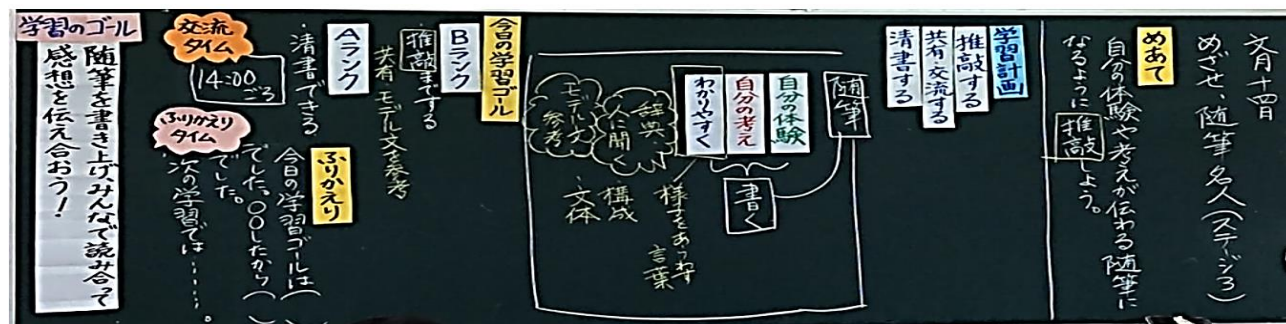 文月十四日
めざせ、随筆名人(ステージ3)
めあて
自分の体験や考えが伝わる随筆に
なるように推敲しよう。
学習計画
推敲する
共有・交流する
清書する
随筆
書く
自分の体験
自分の考え
わかりやすく
様子をあらわす
言葉
構成
・文体
辞典、
人に聞く
モデル文
参考
今日の学習ゴール
Bランク
推敲までする
共有・モデル文を参考
Aランク
清書できる
交流
タイム
14:00
ごろ
ふりかえり
タイム
ふりかえり
今日の学習ゴールは( )
でした。○○したから( )
でした。
次の学習では……。
学習のゴール
随筆を書き上げ、みんなで読み合って
感想を伝え合おう!